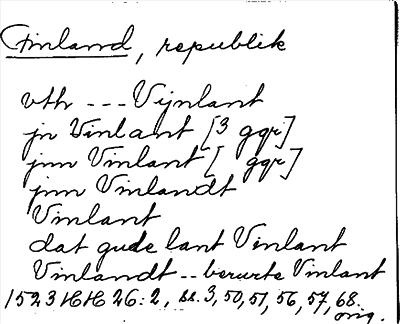 Finland, republik
vth --- Vijnlant
jn Vinlant [3 ggr]
jnn Vinlant [ ggr]
jnn Vinlandt
Vinlant
dat gude lant Vinlant
Vinlandt -- berurte Vinlant
1523 HH 26: 2, ss. 3, 50, 51, 56, 57, 68.
orig.